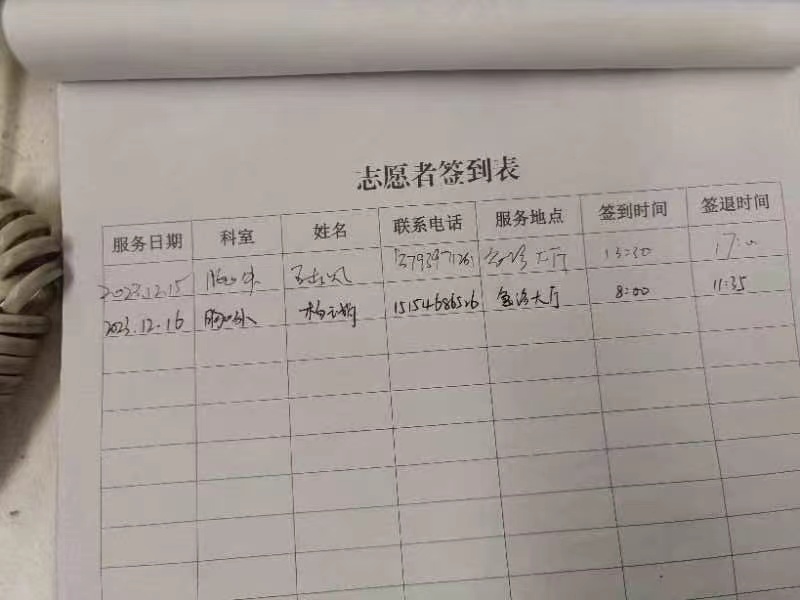 志愿者签到表
服务日期 科室 姓名 联系电话 服务地点 签到时间 签退时间
2023.12.15 胸外 大厅 13:30 17:00
2023.12.16 胸外 15154686526 急诊大厅 8:00 11:35